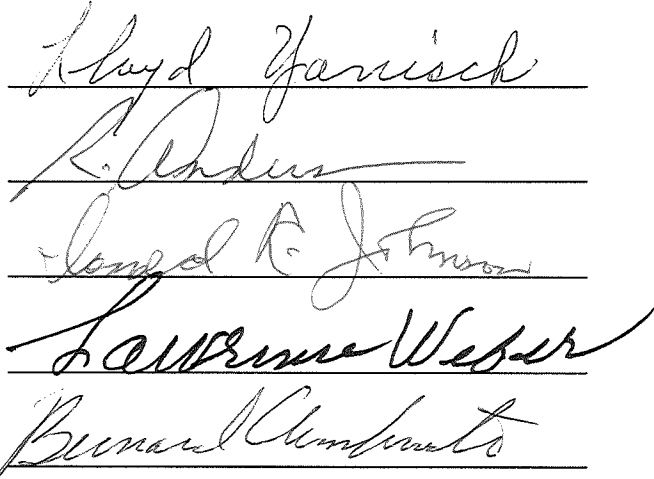 Lloyd Yanisch
R. Anders
R. Johnson
Lawrence Weber
Bernard